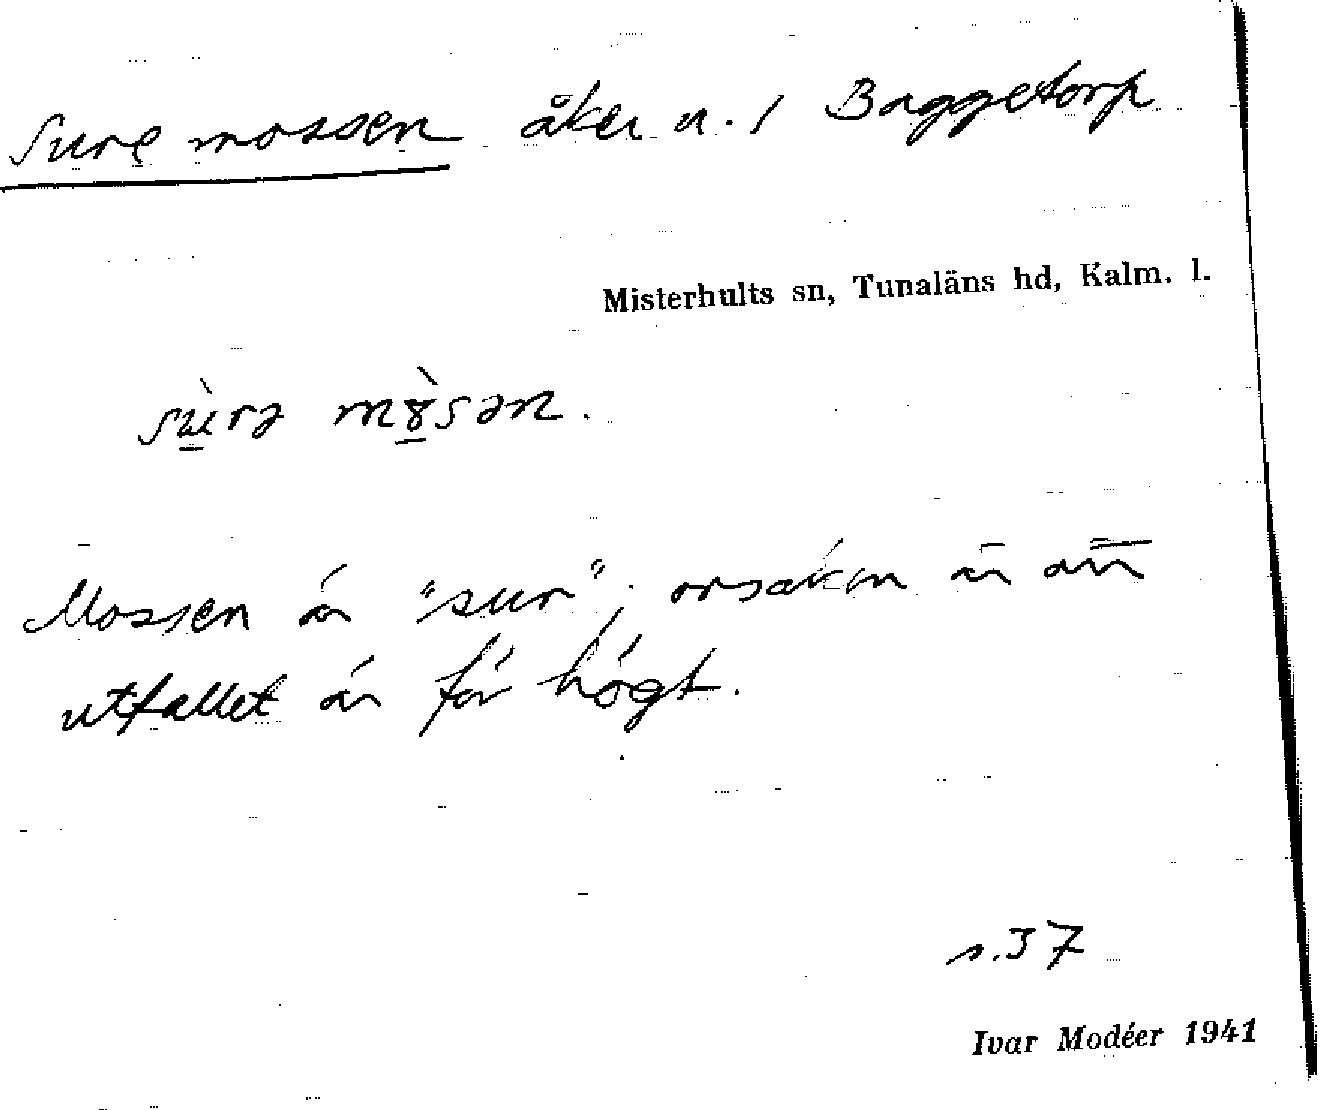 Sure mossen åker u. 1 Baggetorp
Misterhults sn, Tunaläns hd, Kalm. l.
sùrə mɤ̀sən.
Mossen är "sur"; orsaken är att
utfallet är för högt.
s. 37
Ivar Modéer 1941